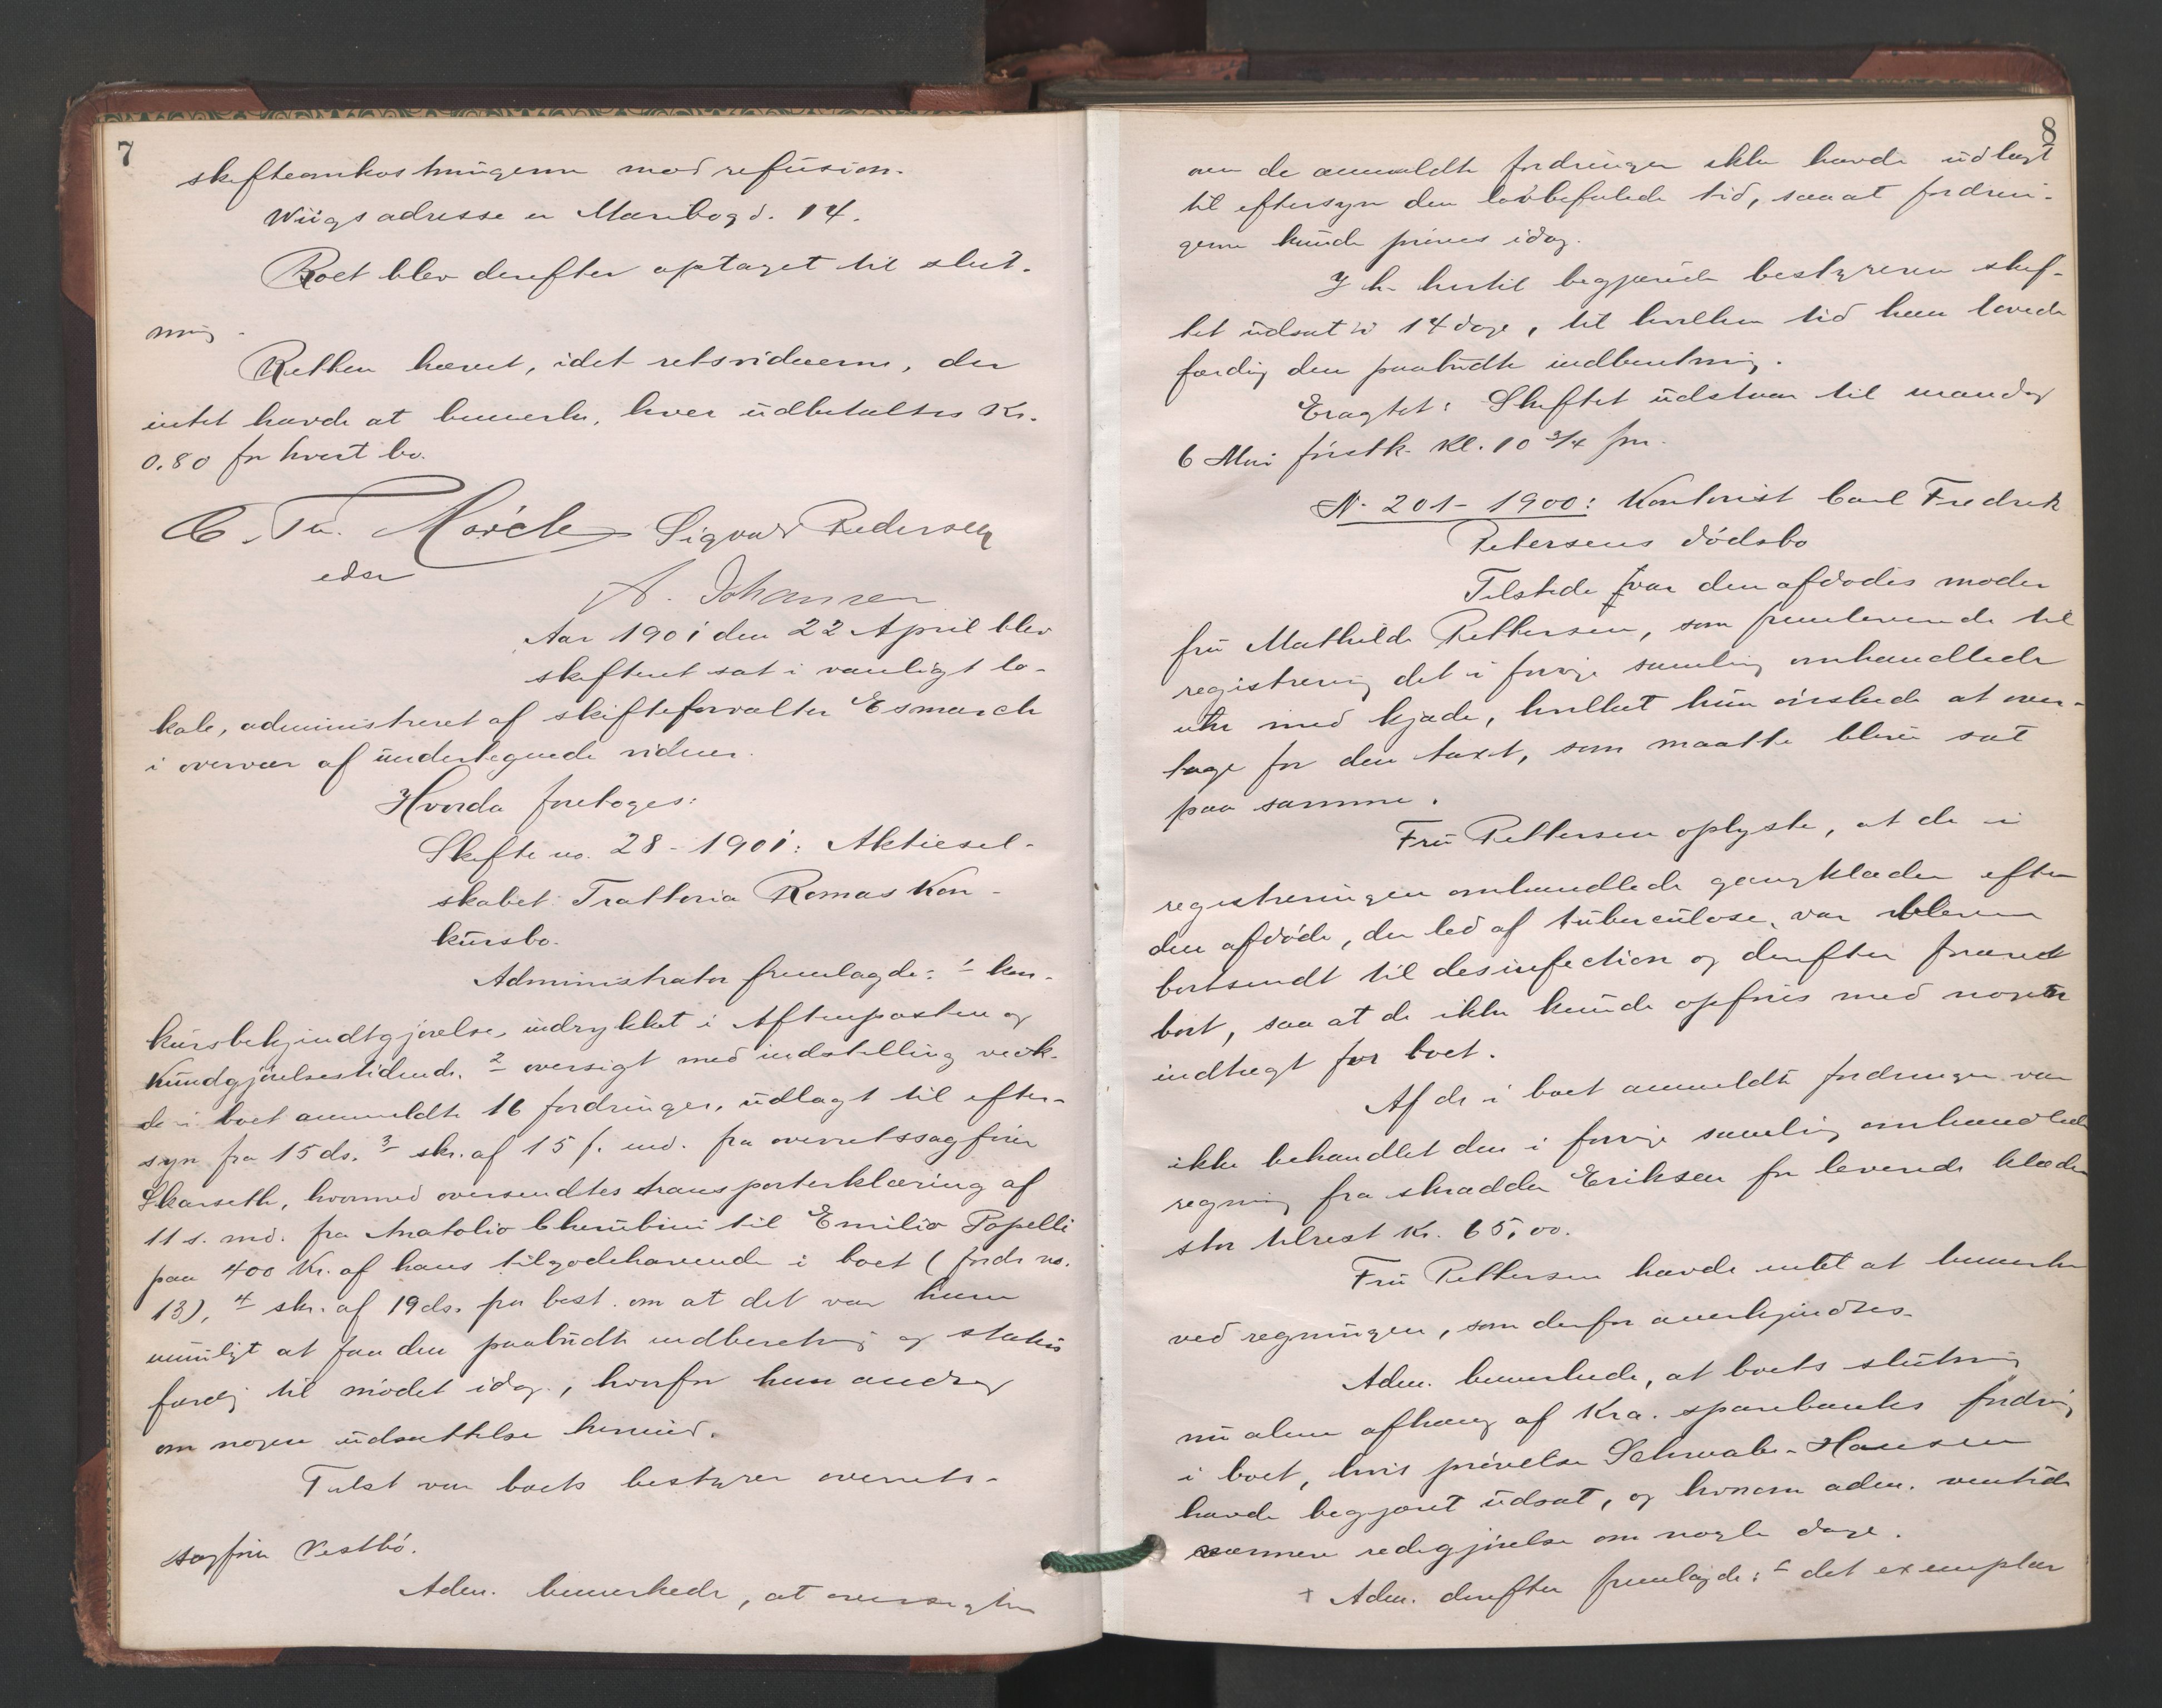 7
skifteomkostningerne mod refusion.
Wiigs adresse er Maribogd. 14.
Boet blev derefter optaget til slut-
ning.
Retten hævet, idet retsvidnerne, der
intet havde at bemerke, hver udbetaltes Kr.
0.80 for hvert bo.
C. Th. Mörch Sigvard Pedersen
edsv
A. Johansen
Aar 1901 den 22 April blev
skifteret sat i vanligt lo-
kale, administreret af skifteforvalter Esmarch
i overvær af undertegnede vidner.
Hvorda foretoges:
Skifte no. 28 - 1901: Aktiesel-
skabet Trattoria Romas Kon-
kursbo.
Administrator fremlagde: 1 kon-
kursbekjendtgjørelse, indrykket i Aftenposten og
Kundgjørelsestidende. 2 oversigt med indstilling vedk.
de i boet anmeldte 16 fordringer, udlagt til efter-
syn fra 15 ds. 3 skr. af 15 f. md. fra overretssagfører
Skarseth, hvormed oversendtes transporterklæring af
11 s. md. fra Anatolio Cherubini til Emilio Popelli
paa 400 Kr. af hans tilgodehavende i boet (fordr no.
13), 4 skr. af 19 ds. fra best. om at det var ham
umuligt at faa den paabudte indberetning og status
færdig til mødet idag, hvorfor han androg
om nogen udsættelse hermed.
Tilst var boets bestyrer overrets-
sagfører Vestbö.
Adm. bemerkede, at oversigten
8
over de anmeldte fordringer ikke havde udlagt
til eftersyn den lovbefalede tid, saa at fordrin-
gerne kunde prøves idag.
I h. hertil begjærede bestyreren skif-
tet udsat i 14 dage, til hvilken tid han lovede
færdig den paabudte indberetning.
Eragtet: Skiftet udstaar til mandag
6 Mai førstk. Kl. 10 3/4 fm.
N. 201 - 1900: Kontorist Carl Fredrik
Petersens dödsbo
Tilstede var den afdødes moder
fru Mathilde Pettersen, som fremleverede til
registrering det i forrige samling omhandlede
uhr med kjæde, hvilket hun ønskede at over-
tage for den taxt, som maatte blive sat
paa samme.
Fru Pettersen oplyste, at de i
registreringen omhandlede gangklæder efter
den afdøde, der led af tuberculose, var bleven
bortsendt til desinfection og derefter foræret
bort, saa at de ikke kunde opføres med nogen
indtægt for boet.
Af de i boet anmeldte fordringer var
ikke behandlet den i forrige samling omhandlede
regning fra skrædder Eriksen for leverede klæder
stor tilrest Kr. 65,00.
Fru Pettersen havde intet at bemerke
ved regningen, som derfor anerkjendtes.
Adm. bemerkede, at boets slutning
nu alene afhang af Kra. sparebanks fordring
i boet, hvis prøvelse Schwabe-Hansen
havde begjæret udsat, og hvorom adm. ventede
nærmere redegjørelse om nogle dage.
+ Adm. derefter fremlagde: det exemplar